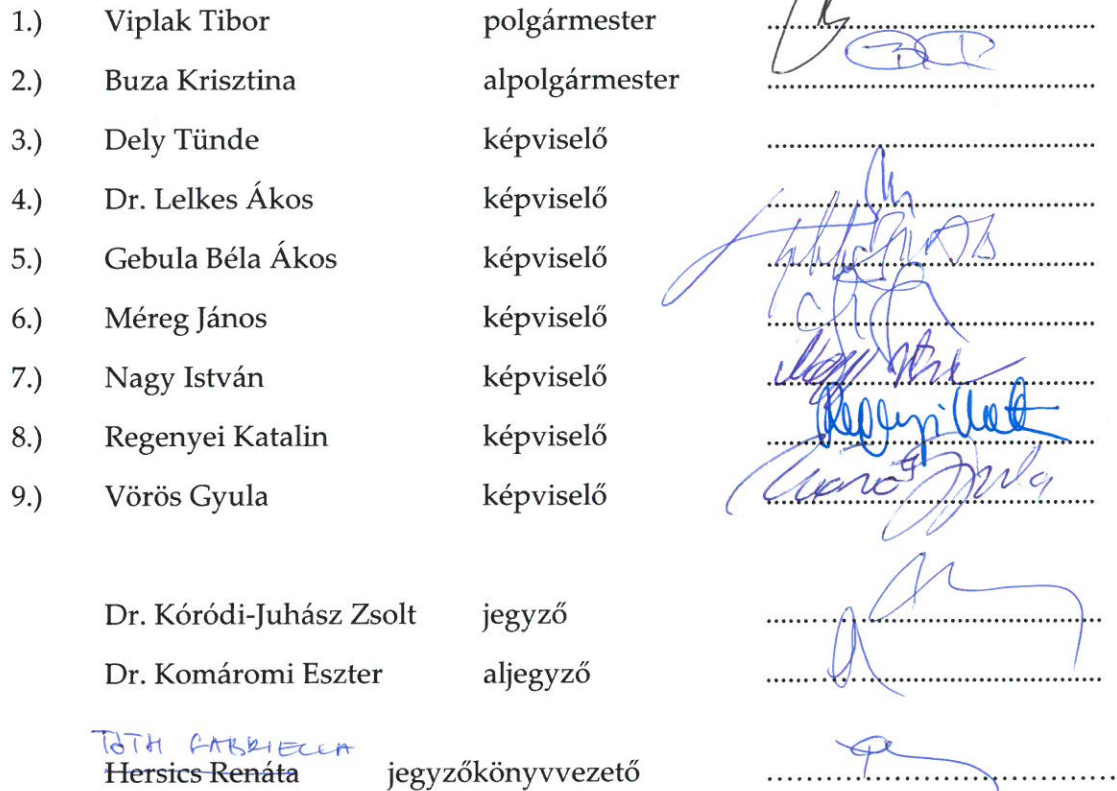 1.) Viplak Tibor polgármester ........................................
2.) Buza Krisztina alpolgármester ........................................
3.) Dely Tünde képviselő ........................................
4.) Dr. Lelkes Ákos képviselő ........................................
5.) Gebula Béla Ákos képviselő ........................................
6.) Méreg János képviselő ........................................
7.) Nagy István képviselő ........................................
8.) Regenyei Katalin képviselő ........................................
9.) Vörös Gyula képviselő ........................................
Dr. Kóródi-Juhász Zsolt jegyző ........................................
Dr. Komáromi Eszter aljegyző ........................................
TÓTH GABRIELLA
Hersics Renáta jegyzőkönyvvezető ........................................